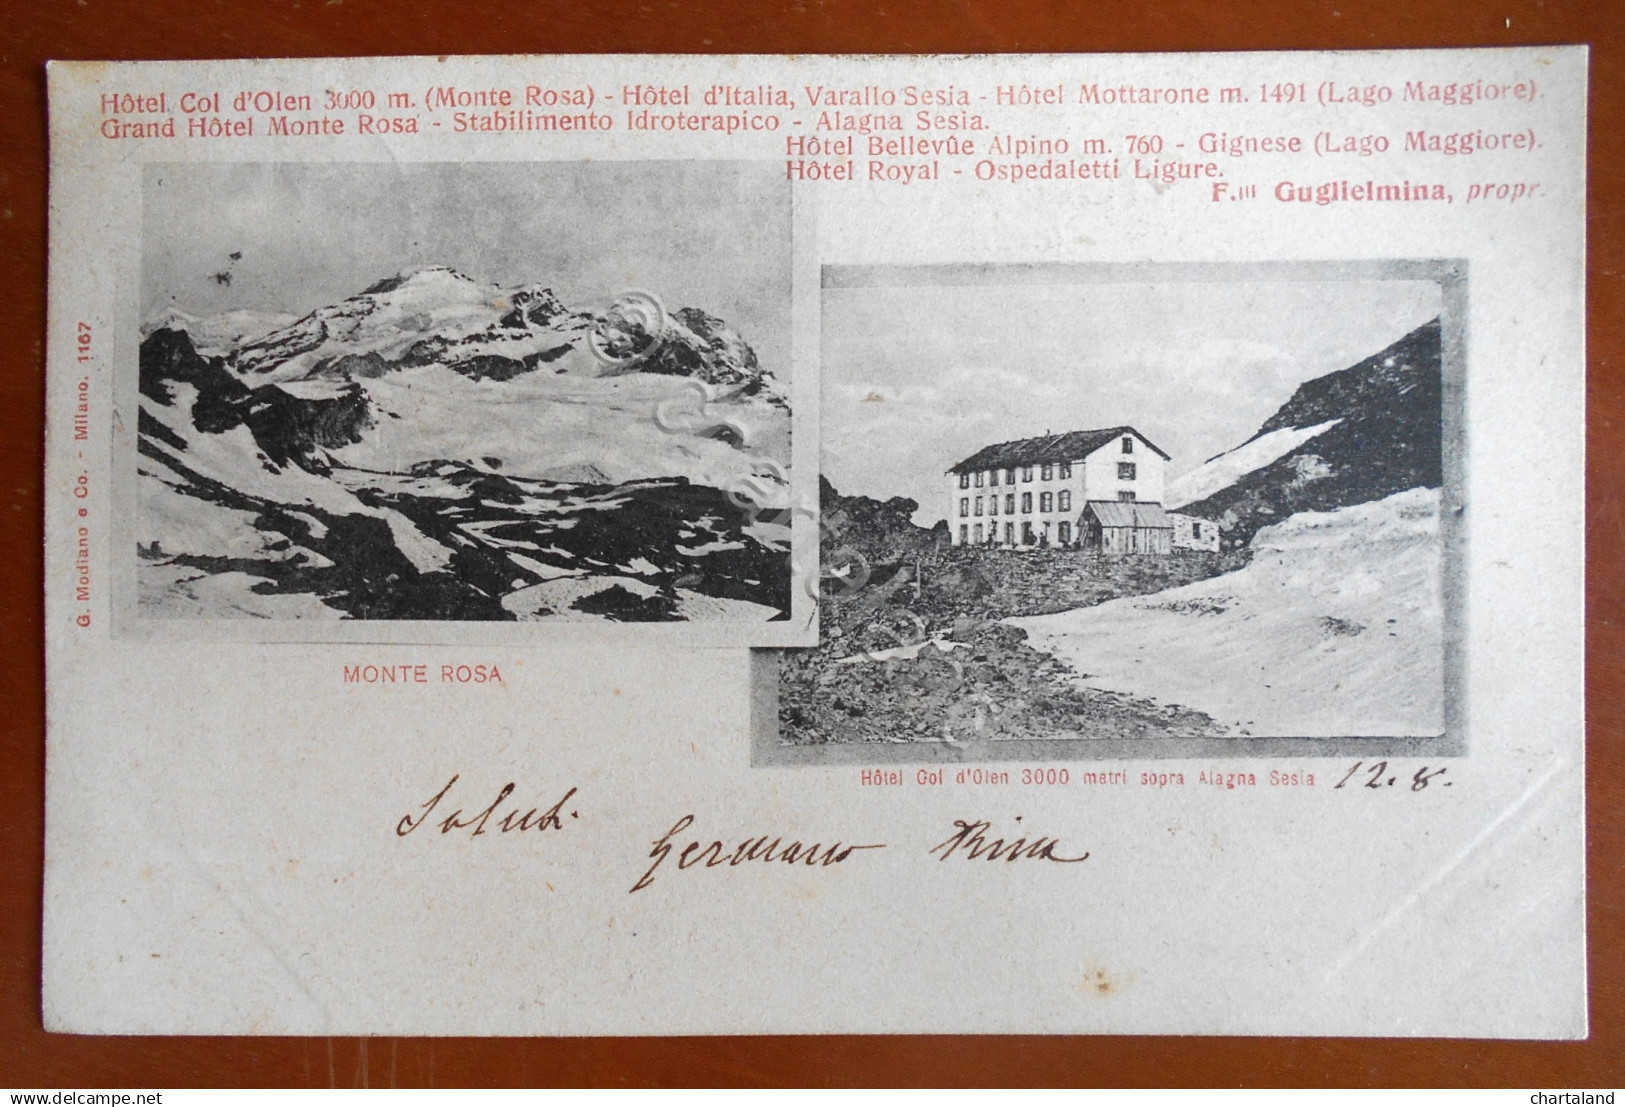 Hôtel Col d'Olen 3000 m. (Monte Rosa) - Hôtel d'Italia, Varallo Sesia - Hôtel Mottarone m. 1491 (Lago Maggiore).
Grand Hôtel Monte Rosa - Stabilimento Idroterapico - Alagna Sesia.
Hôtel Bellevûe Alpino m. 760 - Gignese (Lago Maggiore).
Hôtel Royal - Ospedaletti Ligure.
F.lli Guglielmina, propr.
G. Modiano e Co. - Milano. 1167
MONTE ROSA
Hôtel Col d'Olen 3000 metri sopra Alagna Sesia 12.8.
Saluti.
Germano Rina
delcampe.net
chartaland